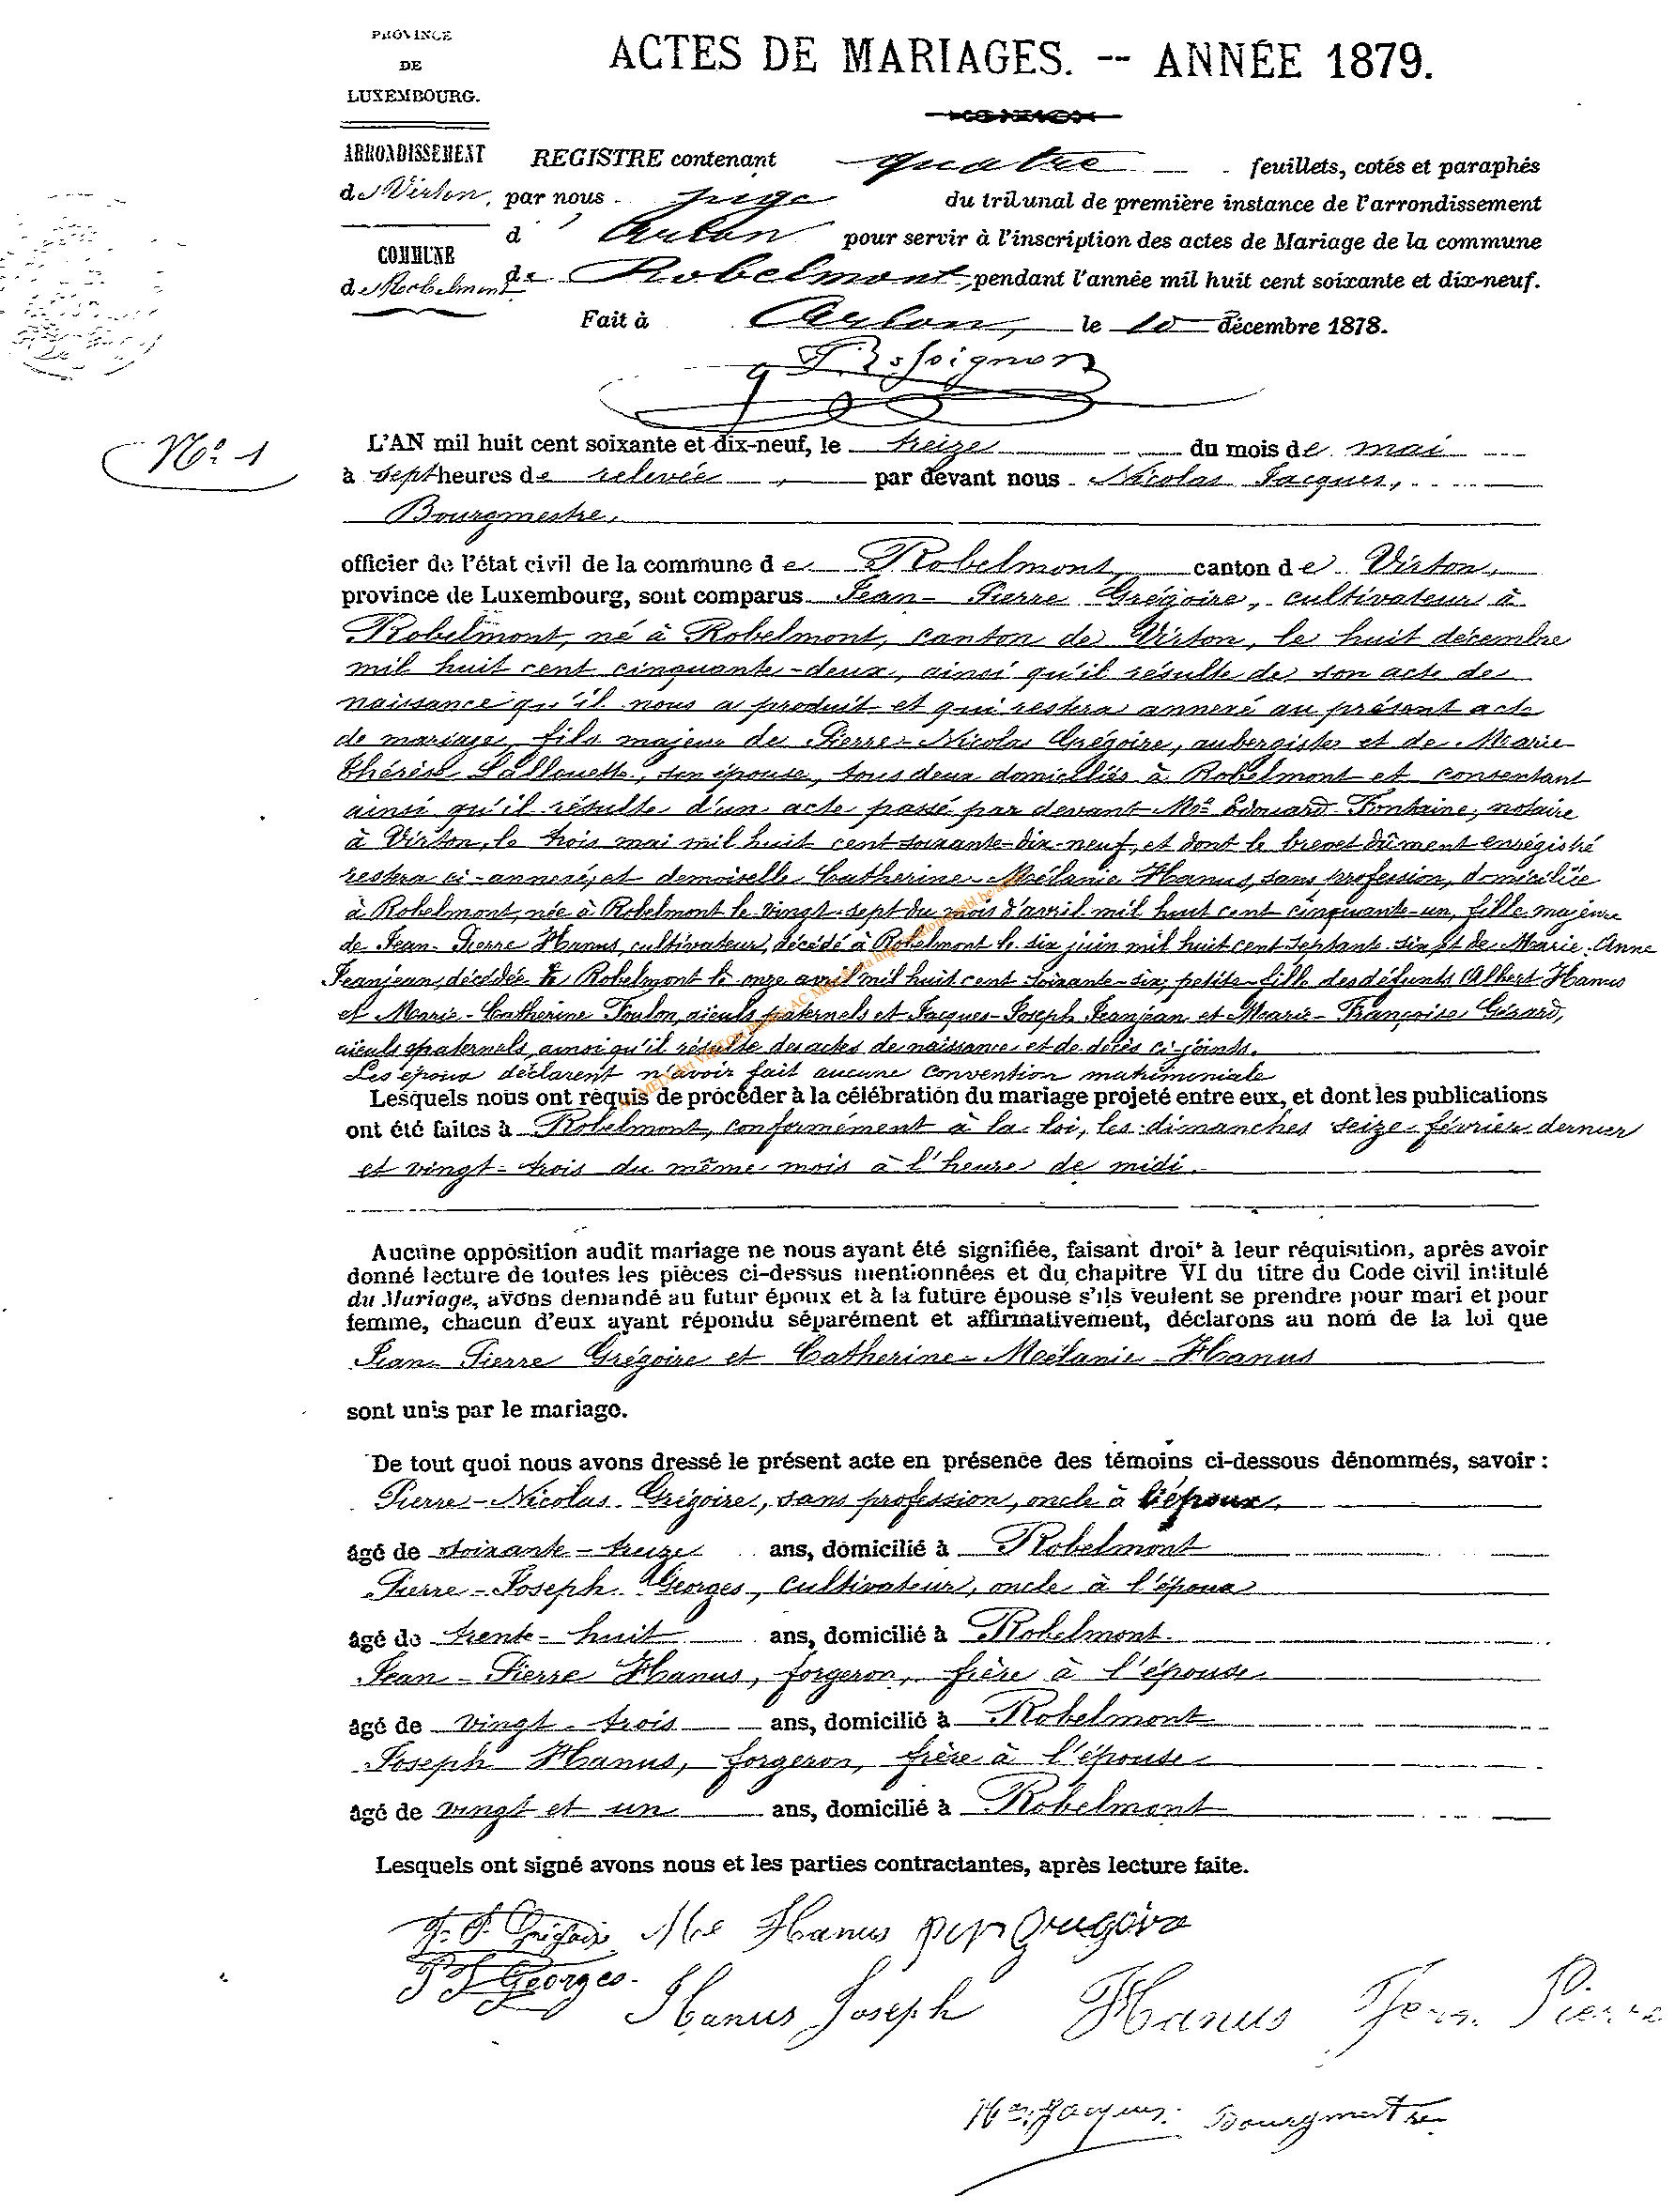 PROVINCE
DE
LUXEMBOURG.
ACTES DE MARIAGES. -- ANNÉE 1879.
ARRONDISSEMENT
de Virton,
COMMUNE
de Robelmont
REGISTRE contenant quatre feuillets, cotés et paraphés
par nous juge du tribunal de première instance de l'arrondissement
d'Arlon pour servir à l'inscription des actes de Mariage de la commune
de Robelmont, pendant l'année mil huit cent soixante et dix-neuf.
Fait à Arlon, le 10 décembre 1878.
N° 1
L'AN mil huit cent soixante et dix-neuf, le treize du mois de mai
à sept heures de relevée, par devant nous Nicolas Jacques,
Bourgmestre,
officier de l'état civil de la commune de Robelmont, canton de Virton,
province de Luxembourg, sont comparus Jean-Pierre Grégoire, cultivateur à
Robelmont, né à Robelmont, canton de Virton, le huit décembre
mil huit cent cinquante-deux, ainsi qu'il résulte de son acte de
naissance qu'il nous a produit et qui restera annexé au présent acte
de mariage, fils majeur de Pierre-Nicolas Grégoire, aubergiste et de Marie
Thérèse Lallouette, son épouse, tous deux domiciliés à Robelmont et consentant
ainsi qu'il résulte d'un acte passé par devant Me Edouard Fontaine, notaire
à Virton, le trois mai mil huit cent soixante-dix-neuf, et dont le brevet dûment enrégistré
restera ci-annexé, et demoiselle Catherine-Mélanie Hanus, sans profession, domiciliée
à Robelmont, née à Robelmont le vingt-sept du mois d'avril mil huit cent cinquante-un, fille majeure
de Jean-Pierre Hanus, cultivateur, décédé à Robelmont le six juin mil huit cent septante-six et de Marie-Anne
Jeanjean, décédée à Robelmont le onze avril mil huit cent soixante-six, petite-fille des défunts Albert Hanus
et Marie-Catherine Toulon, aieuls paternels et Jacques-Joseph Jeanjean et Marie-Françoise Gérard,
aieuls maternels, ainsi qu'il résulte des actes de naissance et de décès ci-joints.
Les époux déclarent n'avoir fait aucune convention matrimoniale
Lesquels nous ont requis de procéder à la célébration du mariage projeté entre eux, et dont les publications
ont été faites à Robelmont, conformément à la loi, les dimanches seize février dernier
et vingt-trois du même mois à l'heure de midi.
Aucune opposition audit mariage ne nous ayant été signifiée, faisant droit à leur réquisition, après avoir
donné lecture de toutes les pièces ci-dessus mentionnées et du chapitre VI du titre du Code civil intitulé
du Mariage, avons demandé au futur époux et à la future épouse s'ils veulent se prendre pour mari et pour
femme, chacun d'eux ayant répondu séparément et affirmativement, déclarons au nom de la loi que
Jean-Pierre Grégoire et Catherine-Mélanie Hanus
sont unis par le mariage.
De tout quoi nous avons dressé le présent acte en présence des témoins ci-dessous dénommés, savoir :
Pierre-Nicolas Grégoire, sans profession, oncle à l'époux,
âgé de soixante-treize ans, domicilié à Robelmont
Pierre-Joseph Georges, cultivateur, oncle à l'époux
âgé de trente-huit ans, domicilié à Robelmont
Jean-Pierre Hanus, forgeron, frère à l'épouse
âgé de vingt-trois ans, domicilié à Robelmont
Joseph Hanus, forgeron, frère à l'épouse
âgé de vingt et un ans, domicilié à Robelmont
Lesquels ont signé avons nous et les parties contractantes, après lecture faite.
J. P. Grégoire Mel Hanus Gregoire
P J Georges.
Hanus Joseph Hanus Jean Pierre
Nas Jacques. Bourgmestre